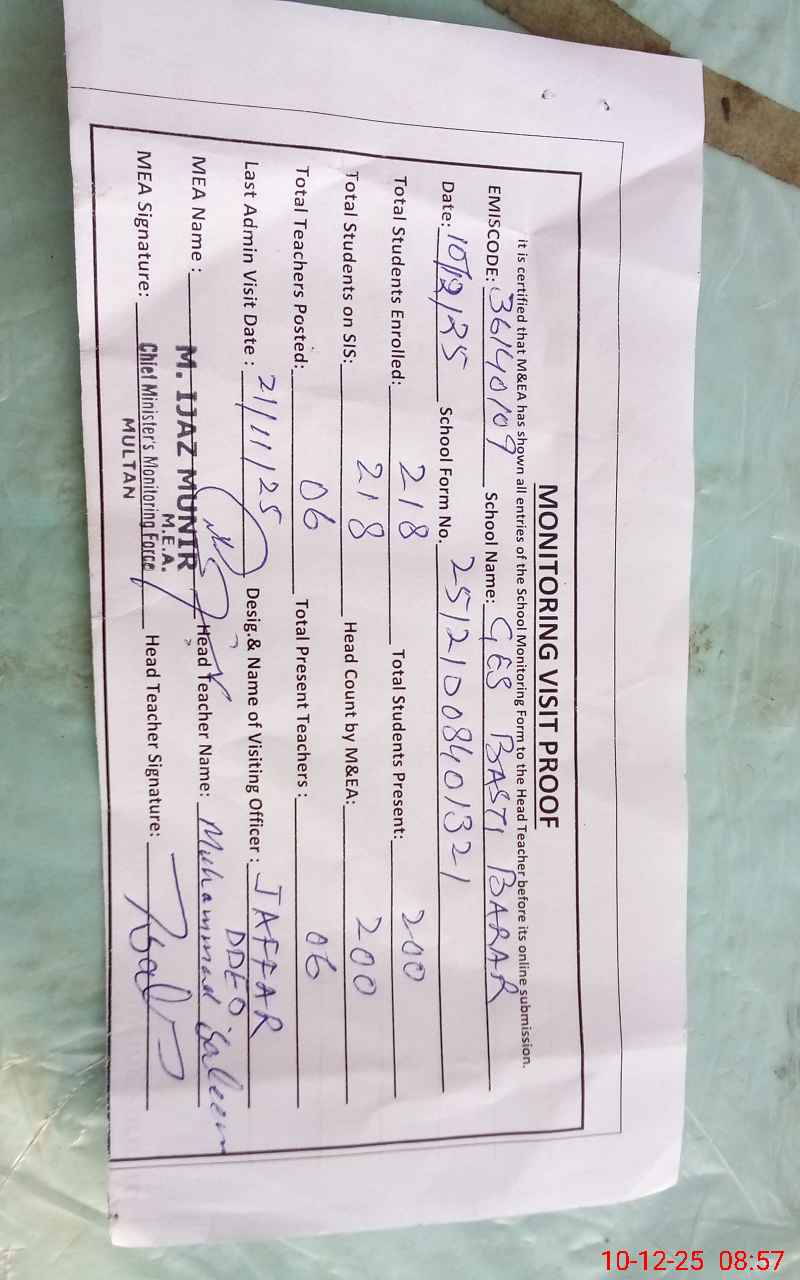 MONITORING VISIT PROOF
it is certified that M&EA has shown all entries of the School Monitoring Form to the Head Teacher before its online submission.
EMISCODE: 36140109 School Name: GES BASTI BARAR
Date: 10/12/25 School Form No. 25121008401321
Total Students Enrolled: 218 Total Students Present: 200
Total Students on SIS: 218 Head Count by M&EA: 200
Total Teachers Posted: 06 Total Present Teachers : 06
Last Admin Visit Date : 21/11/25 Desig.& Name of Visiting Officer : JAFFAR
DDEO
MEA Name : M. IJAZ MUNIR Head Teacher Name: Muhammad Saleem
M.E.A.
MEA Signature: Chief Minister's Monitoring Force Head Teacher Signature:
MULTAN
10-12-25 08:57